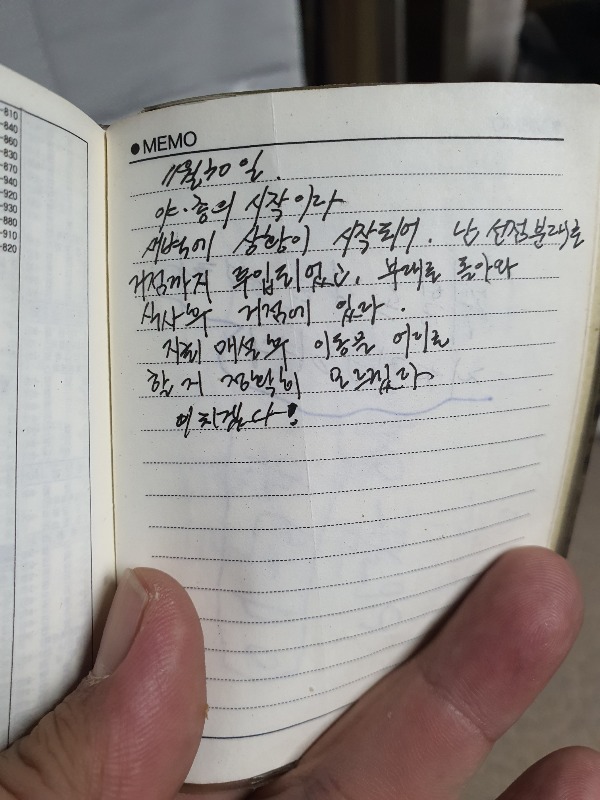 -810
-840
-860
-830
-870
-940
-920
-930
-880
-910
-820
●MEMO
11월 30일.
야·종의 시작이라
새벽에 상황이 시작되어. 난 선점분대로
거점까지 투입되었고, 부대로 돌아와
식사후 거점에 있다.
지뢰 매설후 이동을 어디로
할 지 정확히 모르겠다
미치겠다!